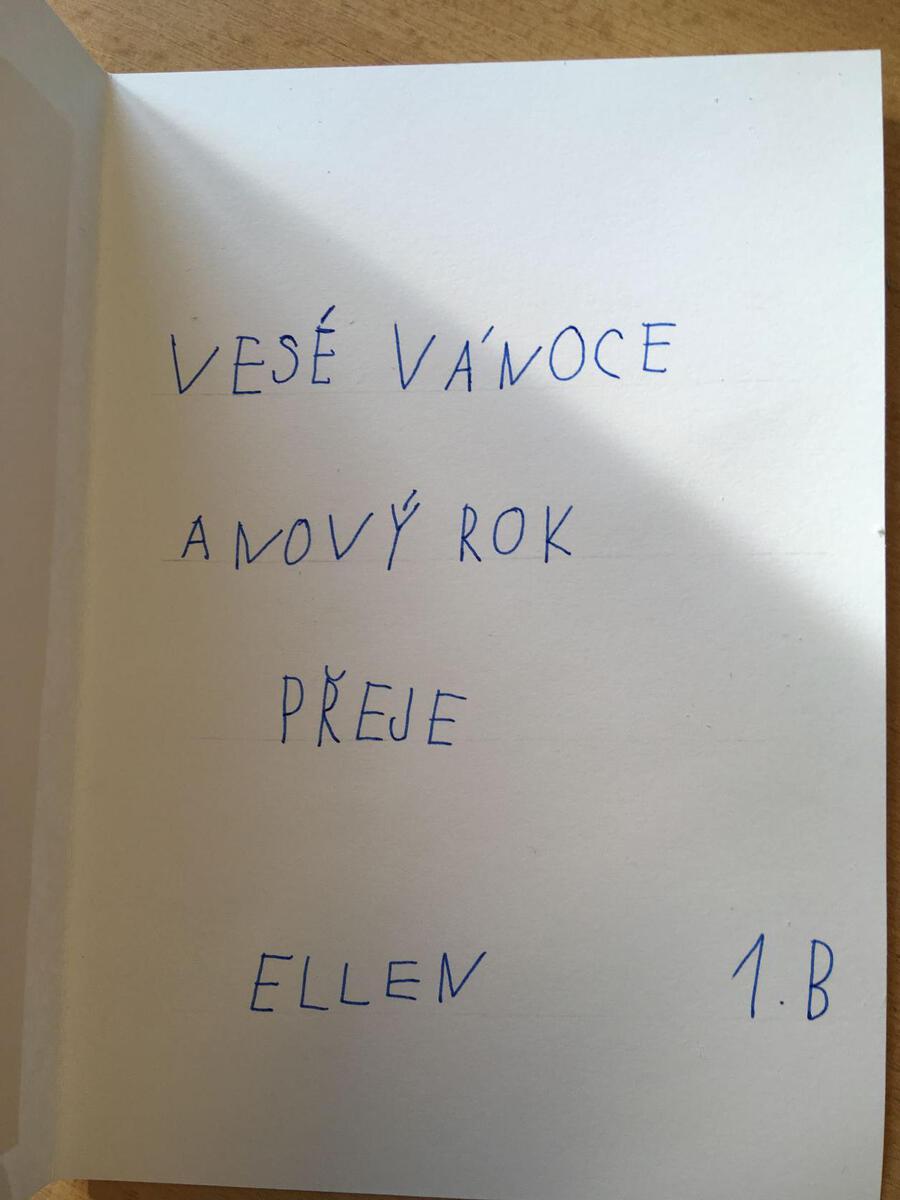 VESÉ VÁNOCE
A NOVÝ ROK
PŘEJE
ELLEN 1.B